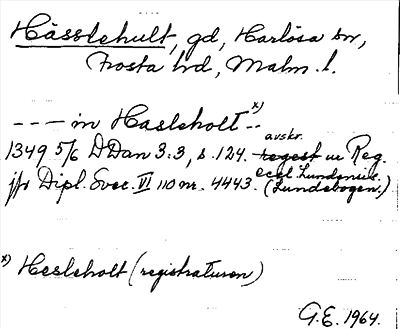 Hässlehult, gd, Harlösa sn,
Frosta hd, Malm. l.
--- in Hasleholt x) --
avskr.
1349 5/6 DDan 3:3, s. 124. regest ur Reg.
eccl. Lundensis.
jfr Dipl. Svec. VI no nr. 4443. (Lundebogen.)
x) Hesleholt (registraturen)
G.E. 1964.